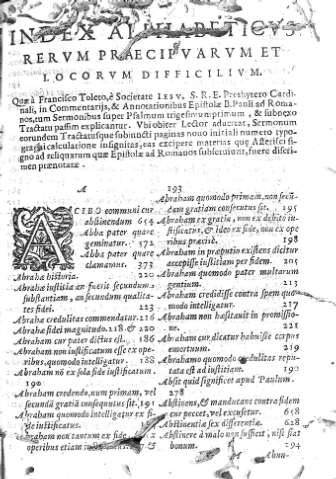 INDEX ALPHABETICVS
RERVM PRAECIPVARVM ET
LOCORVM DIFFICILIVM.
Quæ à Francisco Toleto, è Societate IESV, S. R. E. Presbytero Cardi-
nali, in Commentarijs, & Annotationibus Epistolæ B. Pauli ad Roma-
nos, tum Sermonibus super Psalmum trigesimum primum, & subnexo
Tractatu passim explicantur. Vbi obiter Lector aduertas, Sermonum
eorundem Tractatusque subiuncti paginas nouo initiali numero typo-
graphi calculatione insignitas, eas excipere materias quæ Asterisci si-
gno ad reliquarum quæ Epistolæ ad Romanos subseruiunt, fuere discri-
men prænotatæ.
A
ACIBO communi cur
abstinendum 654
Abba pater quare
geminatur. 372
Abba pater quare
clamamus. 373
Abrahæ historia. 220
Abrahæ iustitia an fuerit secundum
substantiam, an secundum qualita-
tes fidei. 223
Abrahæ credulitas commendatur. 216
Abrahæ fidei magnitudo. 218 & 220
Abraham cur pater dictus est. 186
Abraham non iustificatum esse ex ope-
ribus, quomodo intelligatur. 188
Abrahæ nō ex sola fide iustificatum.
190
Abraham credendo, num primam, vel
secundā gratiā consequutus sit. 191
Abraham quomodo intelligatur ex fi-
de iustificatus.
Abraham non tantum ex fide
operibus etiam
193
Abraham quomodo primam, non secun-
dam gratiam consecutus sit. 195
Abraham ex gratia, non ex debito iu-
stificatus, & ideo ex fide, non ex ope-
ribus præcisè. 198
Abraham in præputio existens dicitur
accepisse iustitiam per fidem. 205
Abraham quomodo pater multarum
gentium. 213
Abraham credidisse contra spem quo-
modo intelligatur. 217
Abraham non hæsitauit in promissio-
ne. 221
Abraham cur dicatur habuisse corpus
emortuum. 219
Abrahamo quomodo credulitas repu-
tata est ad iustitiam. 190
Absit quid significet apud Paulum.
278
Abstinens, & manducans contra fidem
cur peccet, vel excusetur. 658
Abstinentiæ sex differentiæ. 628
Abstinere à malo non sufficit, nisi fiat
bonum. 294
Abun-